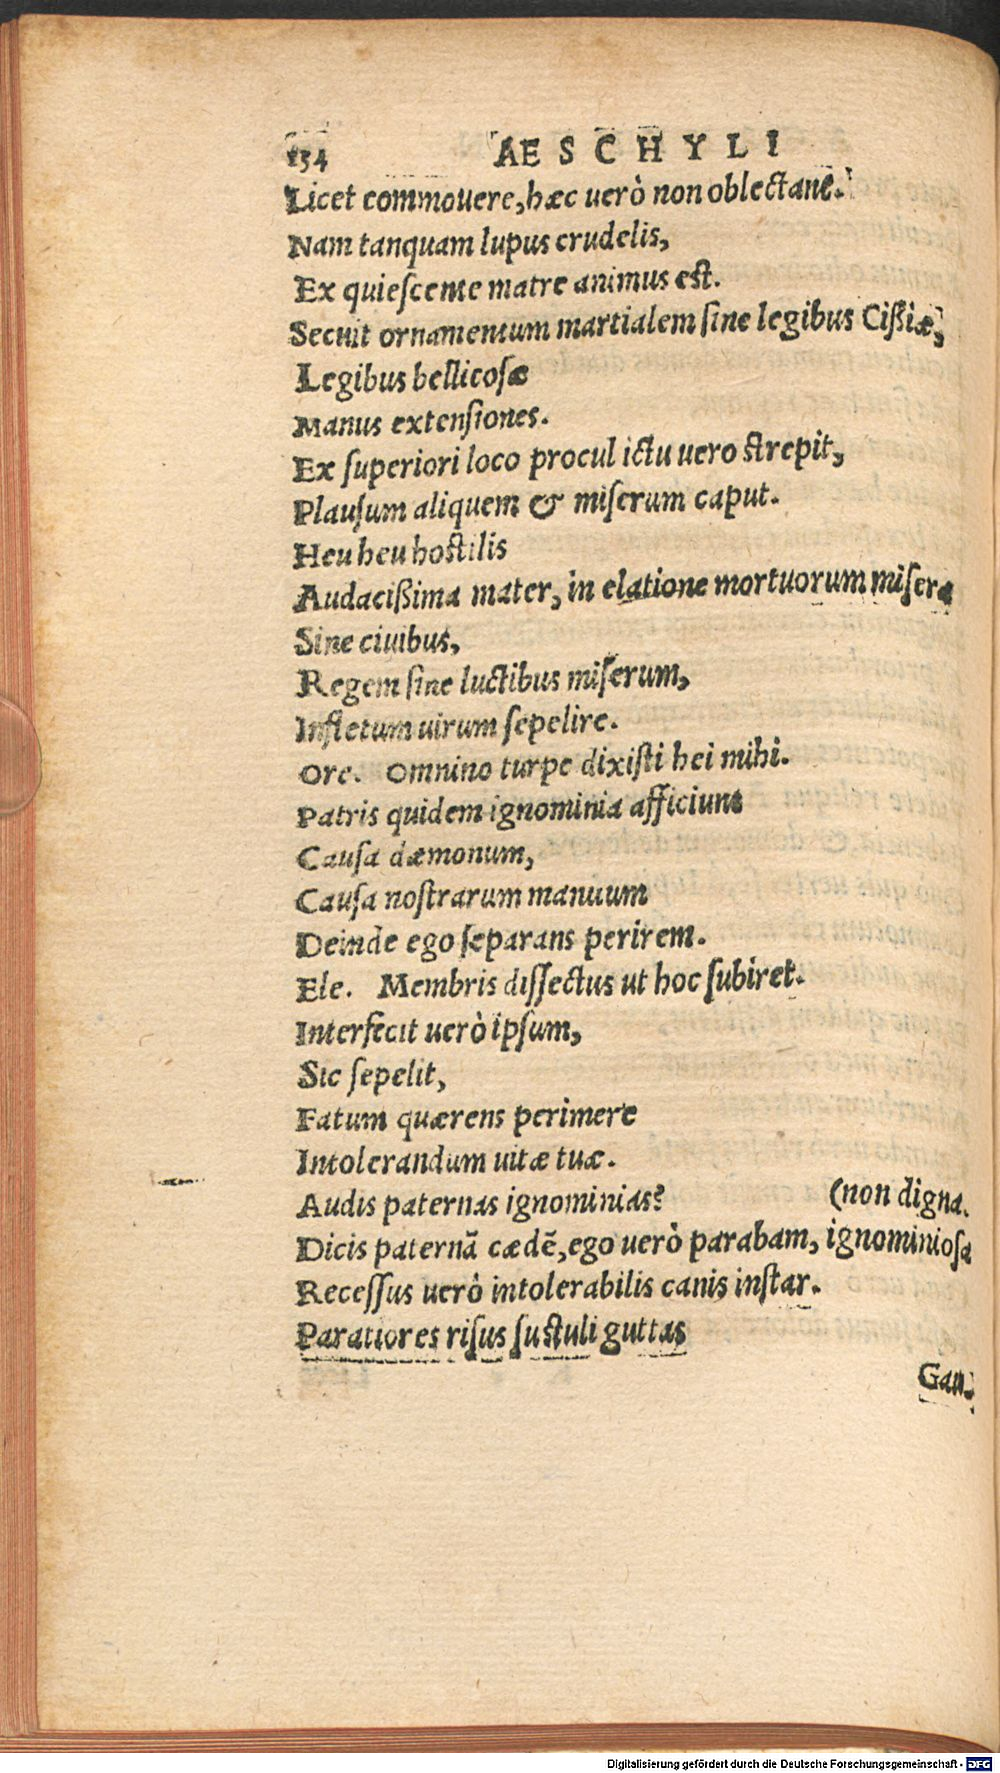 154 AESCHYLI
Licet commouere, hæc uerò non oblectant.
Nam tanquam lupus crudelis,
Ex quiescente matre animus est.
Secuit ornamentum martialem sine legibus Cißiæ,
Legibus bellicosæ
Manus extensiones.
Ex superiori loco procul ictu uero strepit,
Plausum aliquem & miserum caput.
Heu heu hostilis
Audacißima mater, in elatione mortuorum misera
Sine ciuibus,
Regem sine luctibus miserum,
Infletum uirum sepelire.
Ore. Omnino turpe dixisti hei mihi.
Patris quidem ignominia afficiunt
Causa dæmonum,
Causa nostrarum manuum
Deinde ego separans perirem.
Ele. Membris dissectus ut hoc subiret.
Interfecit uerò ipsum,
Sic sepelit,
Fatum quærens perimere
Intolerandum uitæ tuæ.
Audis paternas ignominias? (non digna.
Dicis paternã cædē, ego uerò parabam, ignominiosa
Recessus uerò intolerabilis canis instar.
Paratiores risus sustuli guttas
Gau-
Digitalisierung gefördert durch die Deutsche Forschungsgemeinschaft - DFG